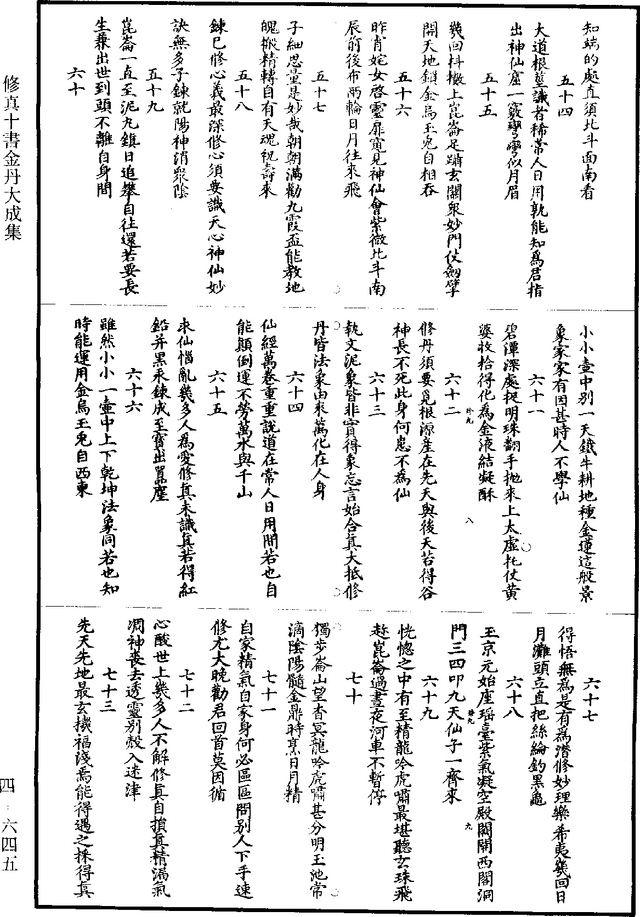 修真十書金丹大成集
知端的處直須北斗面南看
五十四
大道根莖識者稀常人日用孰能知爲君指
出神仙窟一竅彎彎似月眉
五十五
幾回抖擻上崑崙足躡玄關衆妙門仗劒擘
開天地鏁金烏玉兔自相吞
五十六
昨宵姹女啓靈扉窺見神仙會紫微北斗南
辰前後布兩輪日月往來飛
五十七
子細思量是妙哉朝朝滿勸九霞盃能敎地
魄搬精轉自有天魂祝壽來
五十八
鍊已修心義最深修心須要識天心神仙妙
訣無多子鍊就陽神消衆陰
五十九
崑崙一直至泥九鎮日追攀自往還若要長
生兼出世到頭不離自身間
六十
小小壺中別一天鐵牛耕地種金蓮這般景
象家家有因甚時人不學仙
六十一
碧潭深處捉明珠翻手抛來上太虛托仗黃
婆收拾得化爲金液結凝酥
八
六十二
修丹須要覓根源產在先天與後天若得谷
神長不死此身何患不爲仙
六十三
執文泥象皆非實得象忘言始合眞大抵修
丹皆法象由來萬化在人身
六十四
仙經萬卷重重說道在常人日用間若也自
能顚倒運不勞萬水與千山
六十五
求仙惱亂幾多人爲愛修眞未識眞若得紅
鉛并黑汞鍊成至寶出囂塵
六十六
雖然小小一壺中上下乾坤法象同若也知
時能運用金烏玉兔自西東
六十七
得悟無為是有爲潛修妙理樂希夷幾回日
月灘頭立直把絲綸釣黑龜
六十八
玉京元始座瑤臺紫氣凝空殿閣開西閣洞
九
門三四叩九天仙子一齊來
六十九
恍惚之中有至精龍吟虎嘯最堪聽玄珠飛
趂崑崙過晝夜河車不暫停
七十
獨步崙山望杳冥龍吟虎嘯甚分明玉池常
滴陰陽髓金鼎時烹日月精
七十一
自家精氣自家身何必區區問別人下手速
修尤大晚勸君回首莫因循
七十二
心酸世上幾多人不解修眞自損眞精漏氣
凋神喪去透靈別殼入迷津
七十三
先天先地最玄機福淺焉能得遇之採得眞
四·六四五